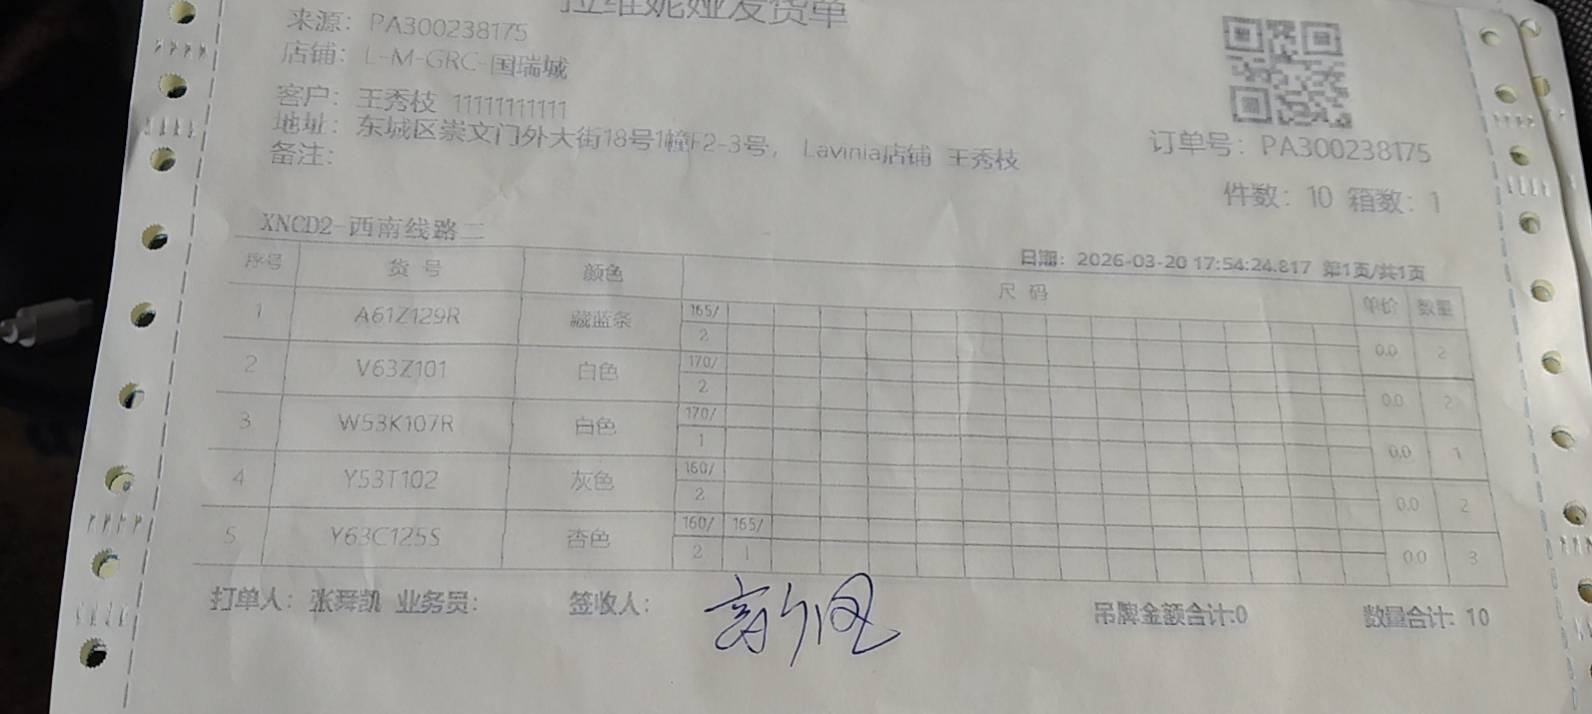 拉维妮娅发货单
来源：PA300238175
店铺：L-M-GRC-国瑞城
客户：王秀枝 11111111111
地址：东城区崇文门外大街18号1幢F2-3号， Lavinia店铺 王秀枝
备注：
订单号：PA300238175
件数：10 箱数：1
XNCD2-西南线路二
日期：2026-03-20 17:54:24.817 第1页/共1页
序号 货号 颜色 尺码 单价 数量
1 A61Z129R 藏蓝条 165/ 2 0.0 2
2 V63Z101 白色 170/ 2 0.0 2
3 W53K107R 白色 170/ 1 0.0 1
4 Y53T102 灰色 160/ 2 0.0 2
5 Y63C125S 杏色 160/ 165/ 2 1 0.0 3
打单人：张舜凯 业务员： 签收人： 吊牌金额合计:0 数量合计: 10